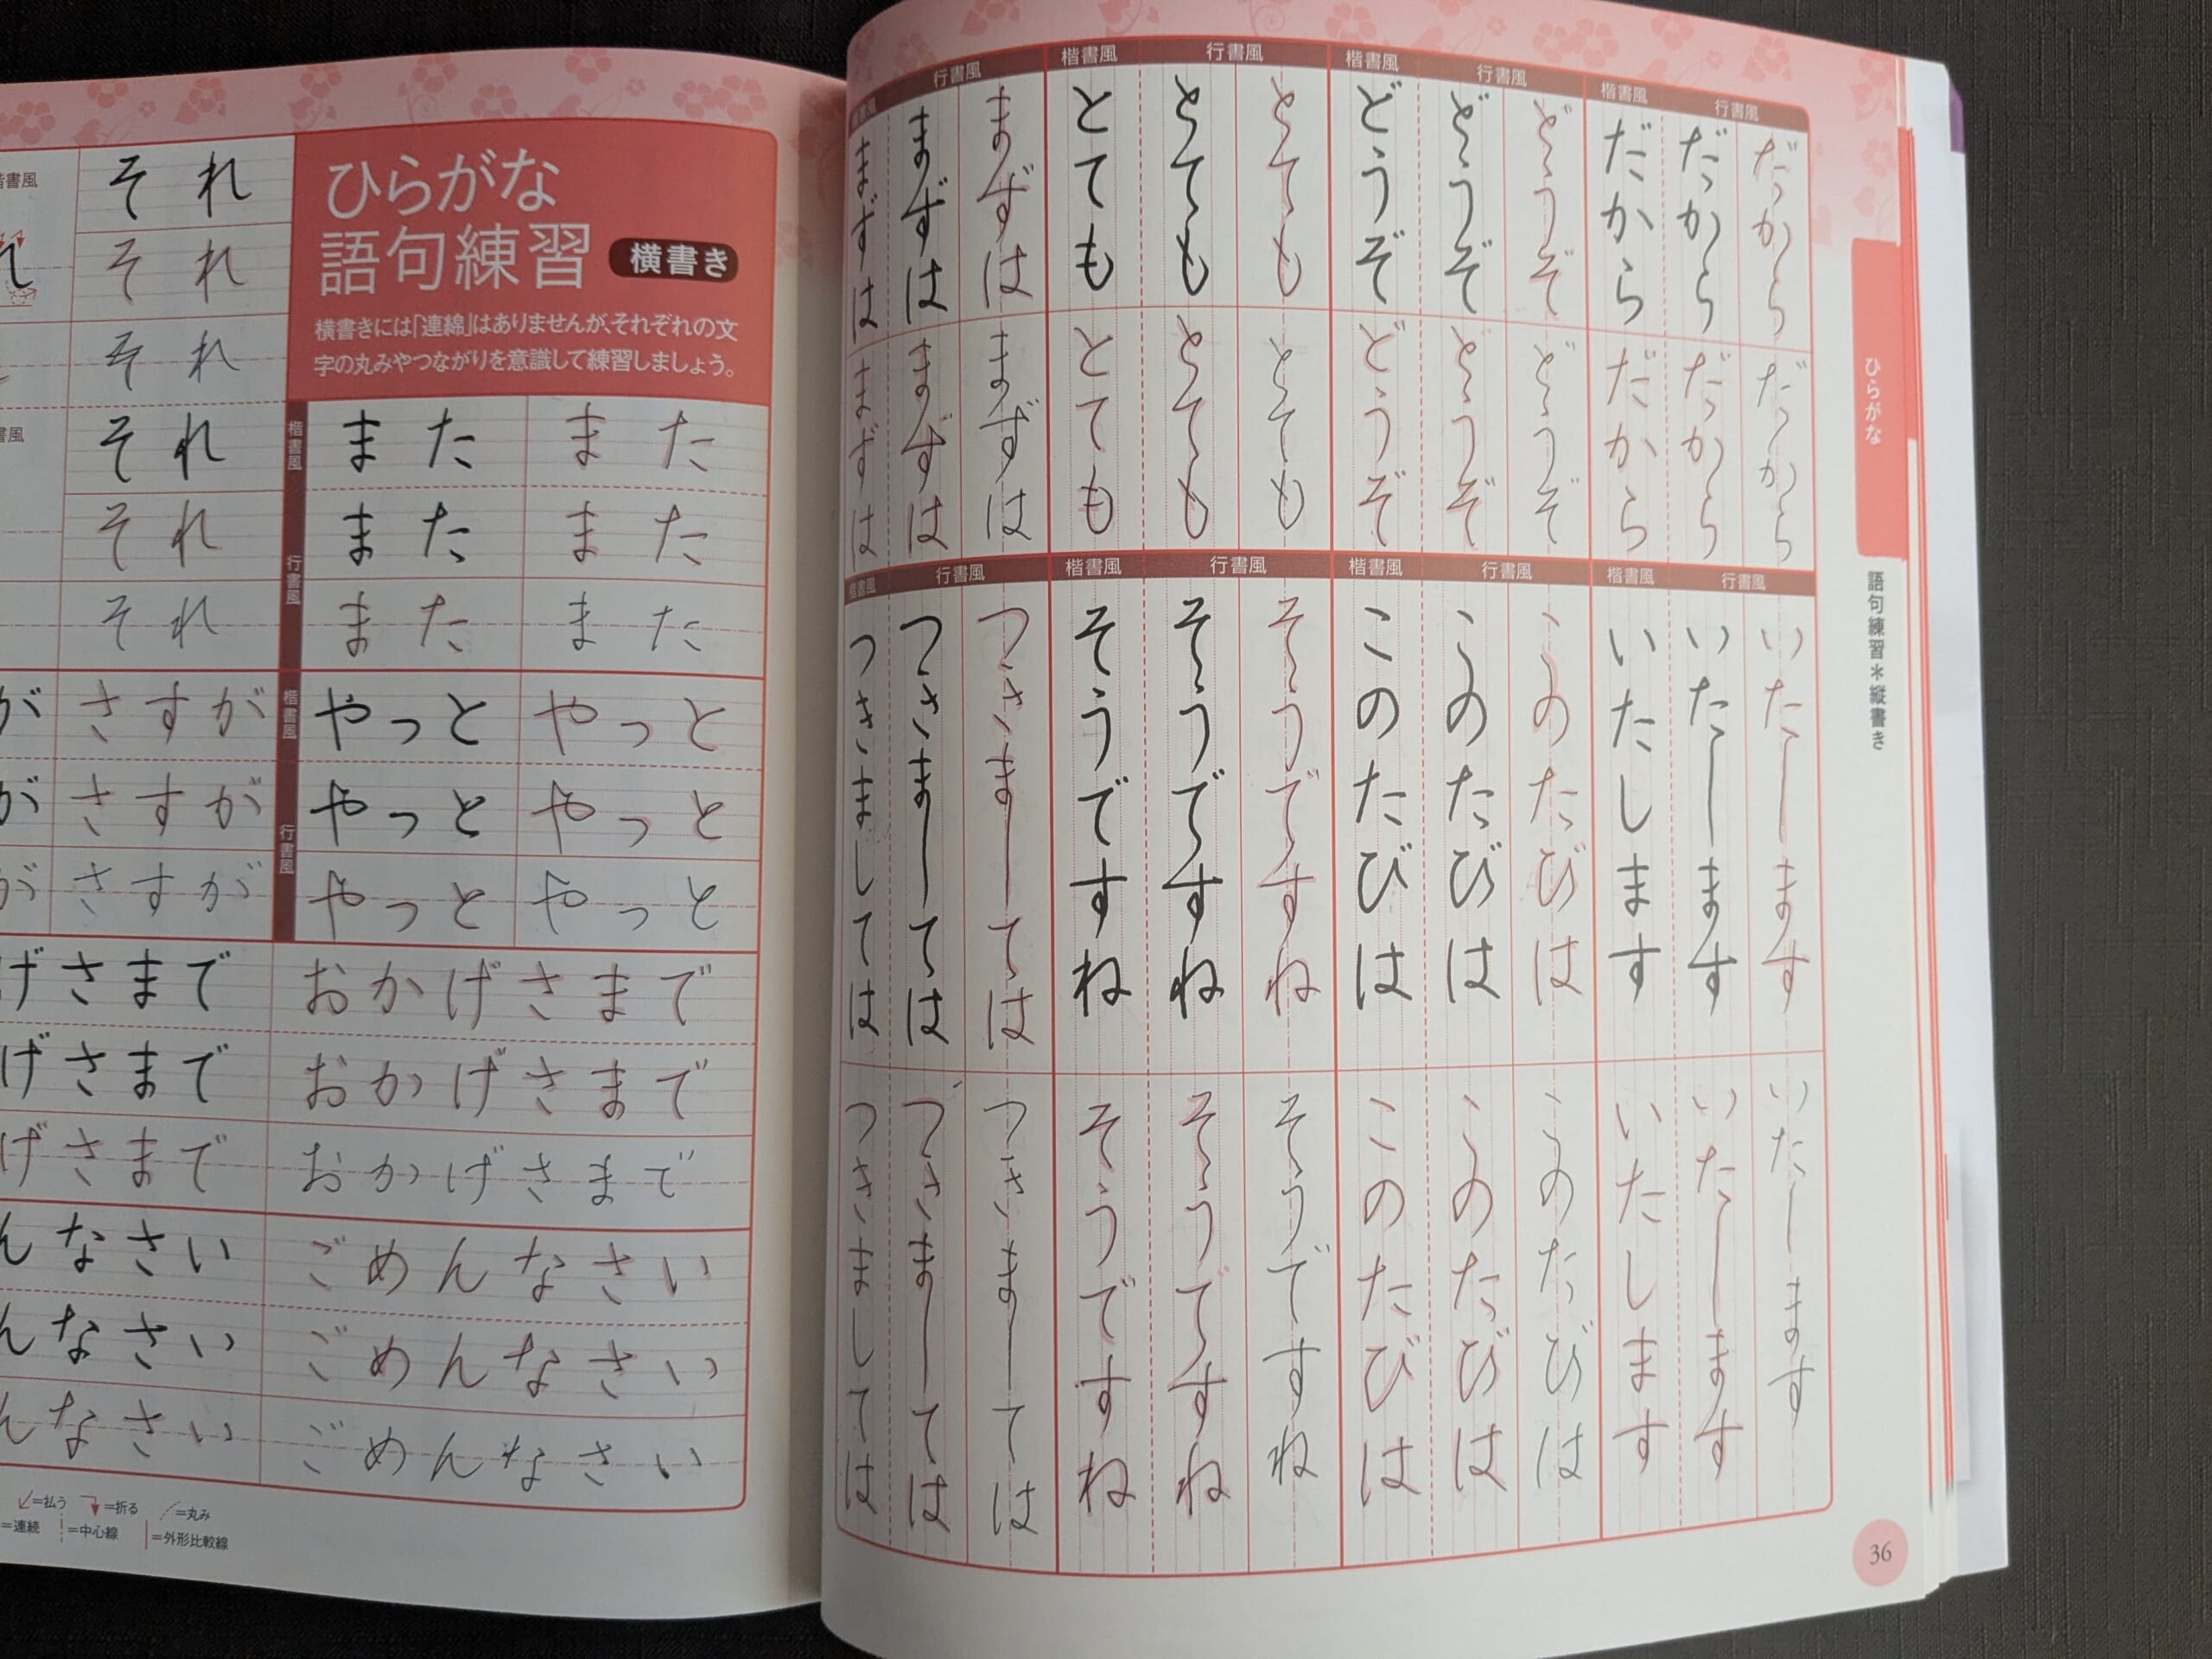 ひらがな
語句練習＊縦書き
楷書風 行書風
だから だから だから
だから だから だから
楷書風 行書風
どうぞ どうぞ どうぞ
どうぞ どうぞ どうぞ
楷書風 行書風
とても とても とても
とても とても とても
行書風
まずは まずは まずは
まずは まずは まずは
楷書風 行書風
いたします いたします いたします
いたします いたします いたします
楷書風 行書風
このたびは このたびは このたびは
このたびは このたびは このたびは
楷書風 行書風
そうですね そうですね そうですね
そうですね そうですね そうですね
楷書風 行書風
つきましては つきましては つきましては
つきましては つきましては つきましては
36
ひらがな
語句練習 横書き
横書きには「連綿」はありませんが、それぞれの文
字の丸みやつながりを意識して練習しましょう。
楷書風
また また
行書風
また また
また また
楷書風
やっと やっと
行書風
やっと やっと
やっと やっと
書風
それ
それ
それ
書風
それ
それ
それ
が さすが
が さすが
が さすが
げさまで おかげさまで
げさまで おかげさまで
げさまで おかげさまで
んなさい ごめんなさい
んなさい ごめんなさい
んなさい ごめんなさい
=払う =折る =丸み
=連続 =中心線 =外形比較線